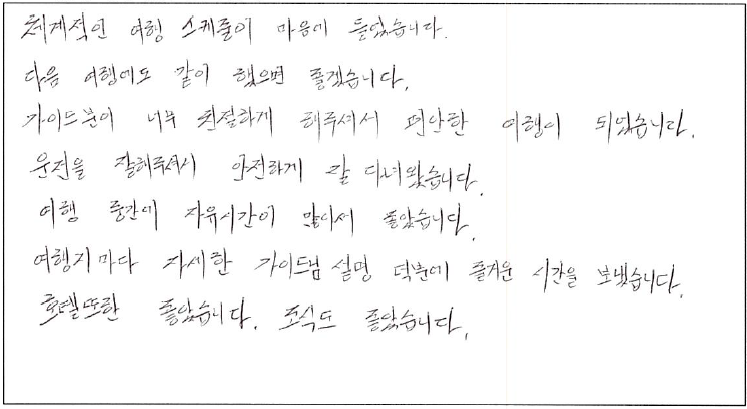 체계적인 여행 스케줄이 마음에 들었습니다.
다음 여행에도 같이 했으면 좋겠습니다.
가이드분이 너무 친절하게 해주셔서 편안한 여행이 되었습니다.
운전을 잘해주셔서 안전하게 잘 다녀왔습니다.
여행 중간에 자유시간이 많아서 좋았습니다.
여행지마다 자세한 가이드님 설명 덕분에 즐거운 시간을 보냈습니다.
호텔또한 좋았습니다. 조식도 좋았습니다.